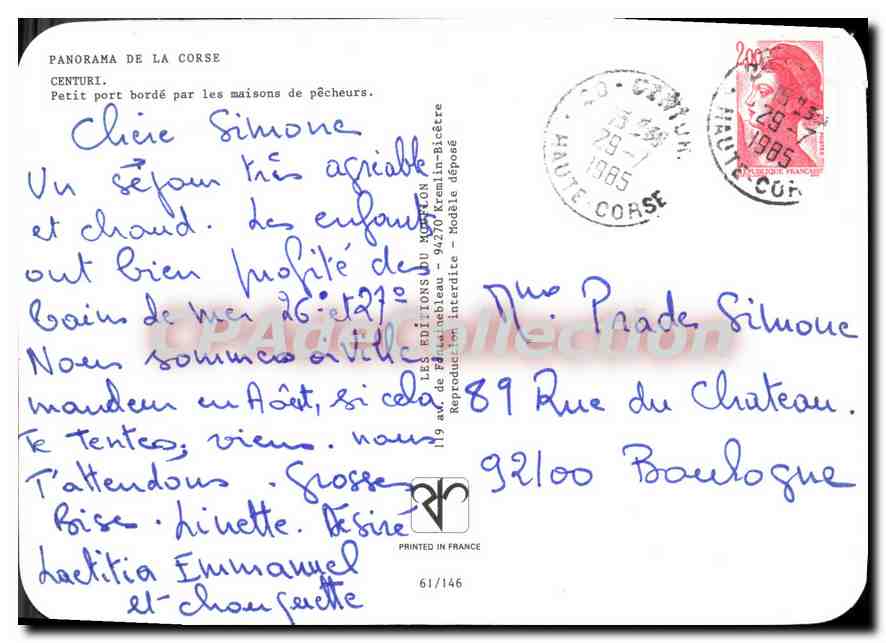 PANORAMA DE LA CORSE
CENTURI.
Petit port bordé par les maisons de pêcheurs.
Chère Simone
Un séjour très agréable
et chaud. Les enfants
ont bien profité des
bains de mer 26° et 27°
Nous sommes à Ville
mandeur en Août, si cela
Te tentes, viens. nous
T'attendons. Grosses
Bises. Linette. Désiré
Laetitia Emmanuel
et chouquette
LES EDITIONS DU MOUFLON
119 av. de Fontainebleau - 94270 Kremlin-Bicêtre
Reproduction interdite - Modèle déposé
PRINTED IN FRANCE
61/146
20 - CENTURI
15H
29-7
1985
HAUTE-CORSE
2,00
15H
29-7
1985
HAUTE-CORSE
REPUBLIQUE FRANÇAISE
Mme Prades Simone
89 Rue du Chateau.
92100 Boulogne
CPAdeCollection